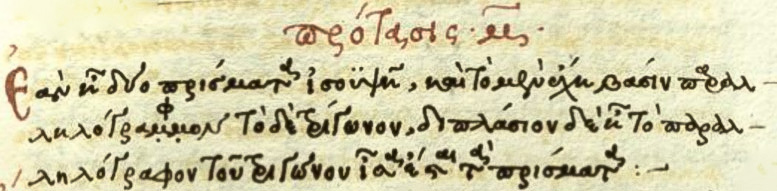 πρότασις · μ ·
Ἐὰν ᾖ δύο πρίσματα ἰσοϋψῆ, καὶ τὸ μὲν ἔχη βάσιν παραλ–
ληλόγραμμον τὸ δὲ τρίγωνον, διπλάσιον δὲ ᾖ τὸ παραλ–
ληλόγραφον τοῦ τριγώνου ἴσα ἔσται τὰ πρίσματα :–